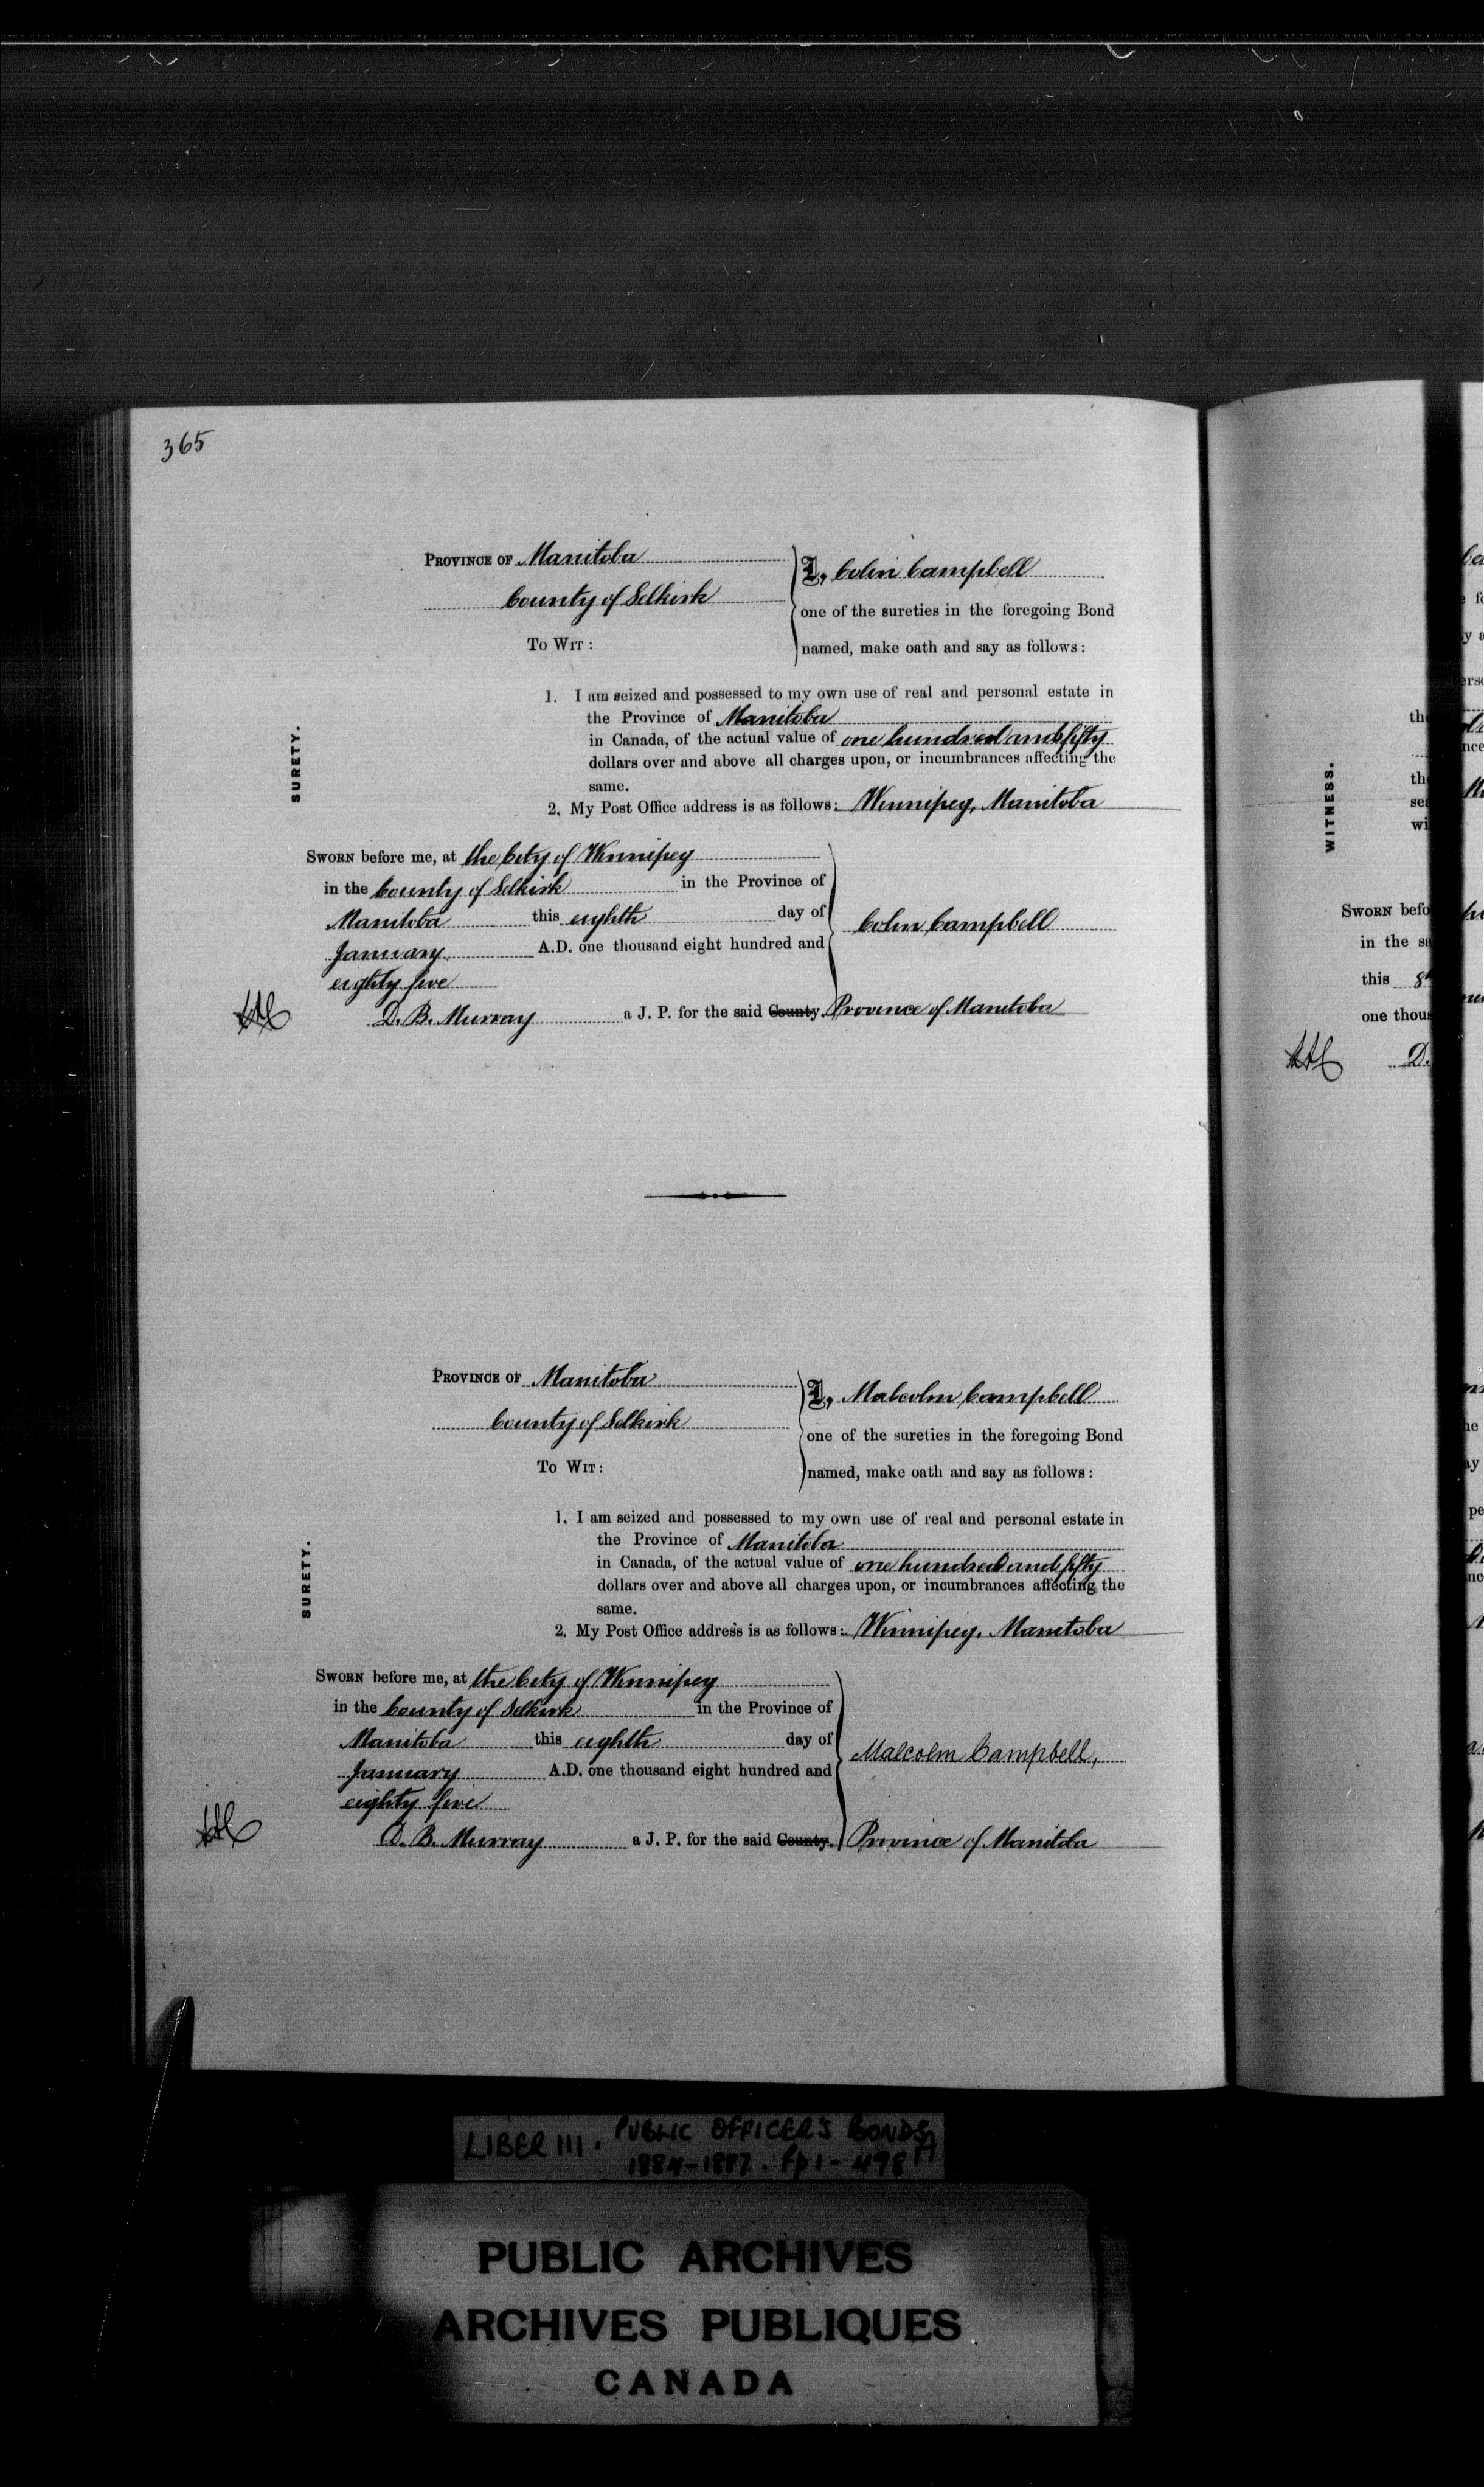 365
PROVINCE OF Manitoba
County of Selkirk
TO WIT:
I, Colin Campbell
one of the sureties in the foregoing Bond
named, make oath and say as follows:
SURETY.
1. I am seized and possessed to my own use of real and personal estate in
the Province of Manitoba
in Canada, of the actual value of one hundred and fifty
dollars over and above all charges upon, or incumbrances affecting the
same.
2. My Post Office address is as follows: Winnipeg, Manitoba
SWORN before me, at the City of Winnipeg
in the County of Selkirk in the Province of
Manitoba this eighth day of
January A.D. one thousand eight hundred and
eighty five
Colin Campbell
D. B. Murray a J. P. for the said County. Province of Manitoba
PROVINCE OF Manitoba
County of Selkirk
TO WIT:
I, Malcolm Campbell
one of the sureties in the foregoing Bond
named, make oath and say as follows:
SURETY.
1. I am seized and possessed to my own use of real and personal estate in
the Province of Manitoba
in Canada, of the actual value of one hundred and fifty
dollars over and above all charges upon, or incumbrances affecting the
same.
2. My Post Office address is as follows: Winnipeg, Manitoba
SWORN before me, at the City of Winnipeg
in the County of Selkirk in the Province of
Manitoba this eighth day of
January A.D. one thousand eight hundred and
eighty five
Malcolm Campbell,
D. B. Murray a J. P. for the said County. Province of Manitoba
WITNESS.
SWORN befo
in the sa
this 8
one thous
D.
LIBER III. PUBLIC OFFICER'S BONDS
1884-1887. pp 1-498A
PUBLIC ARCHIVES
ARCHIVES PUBLIQUES
CANADA